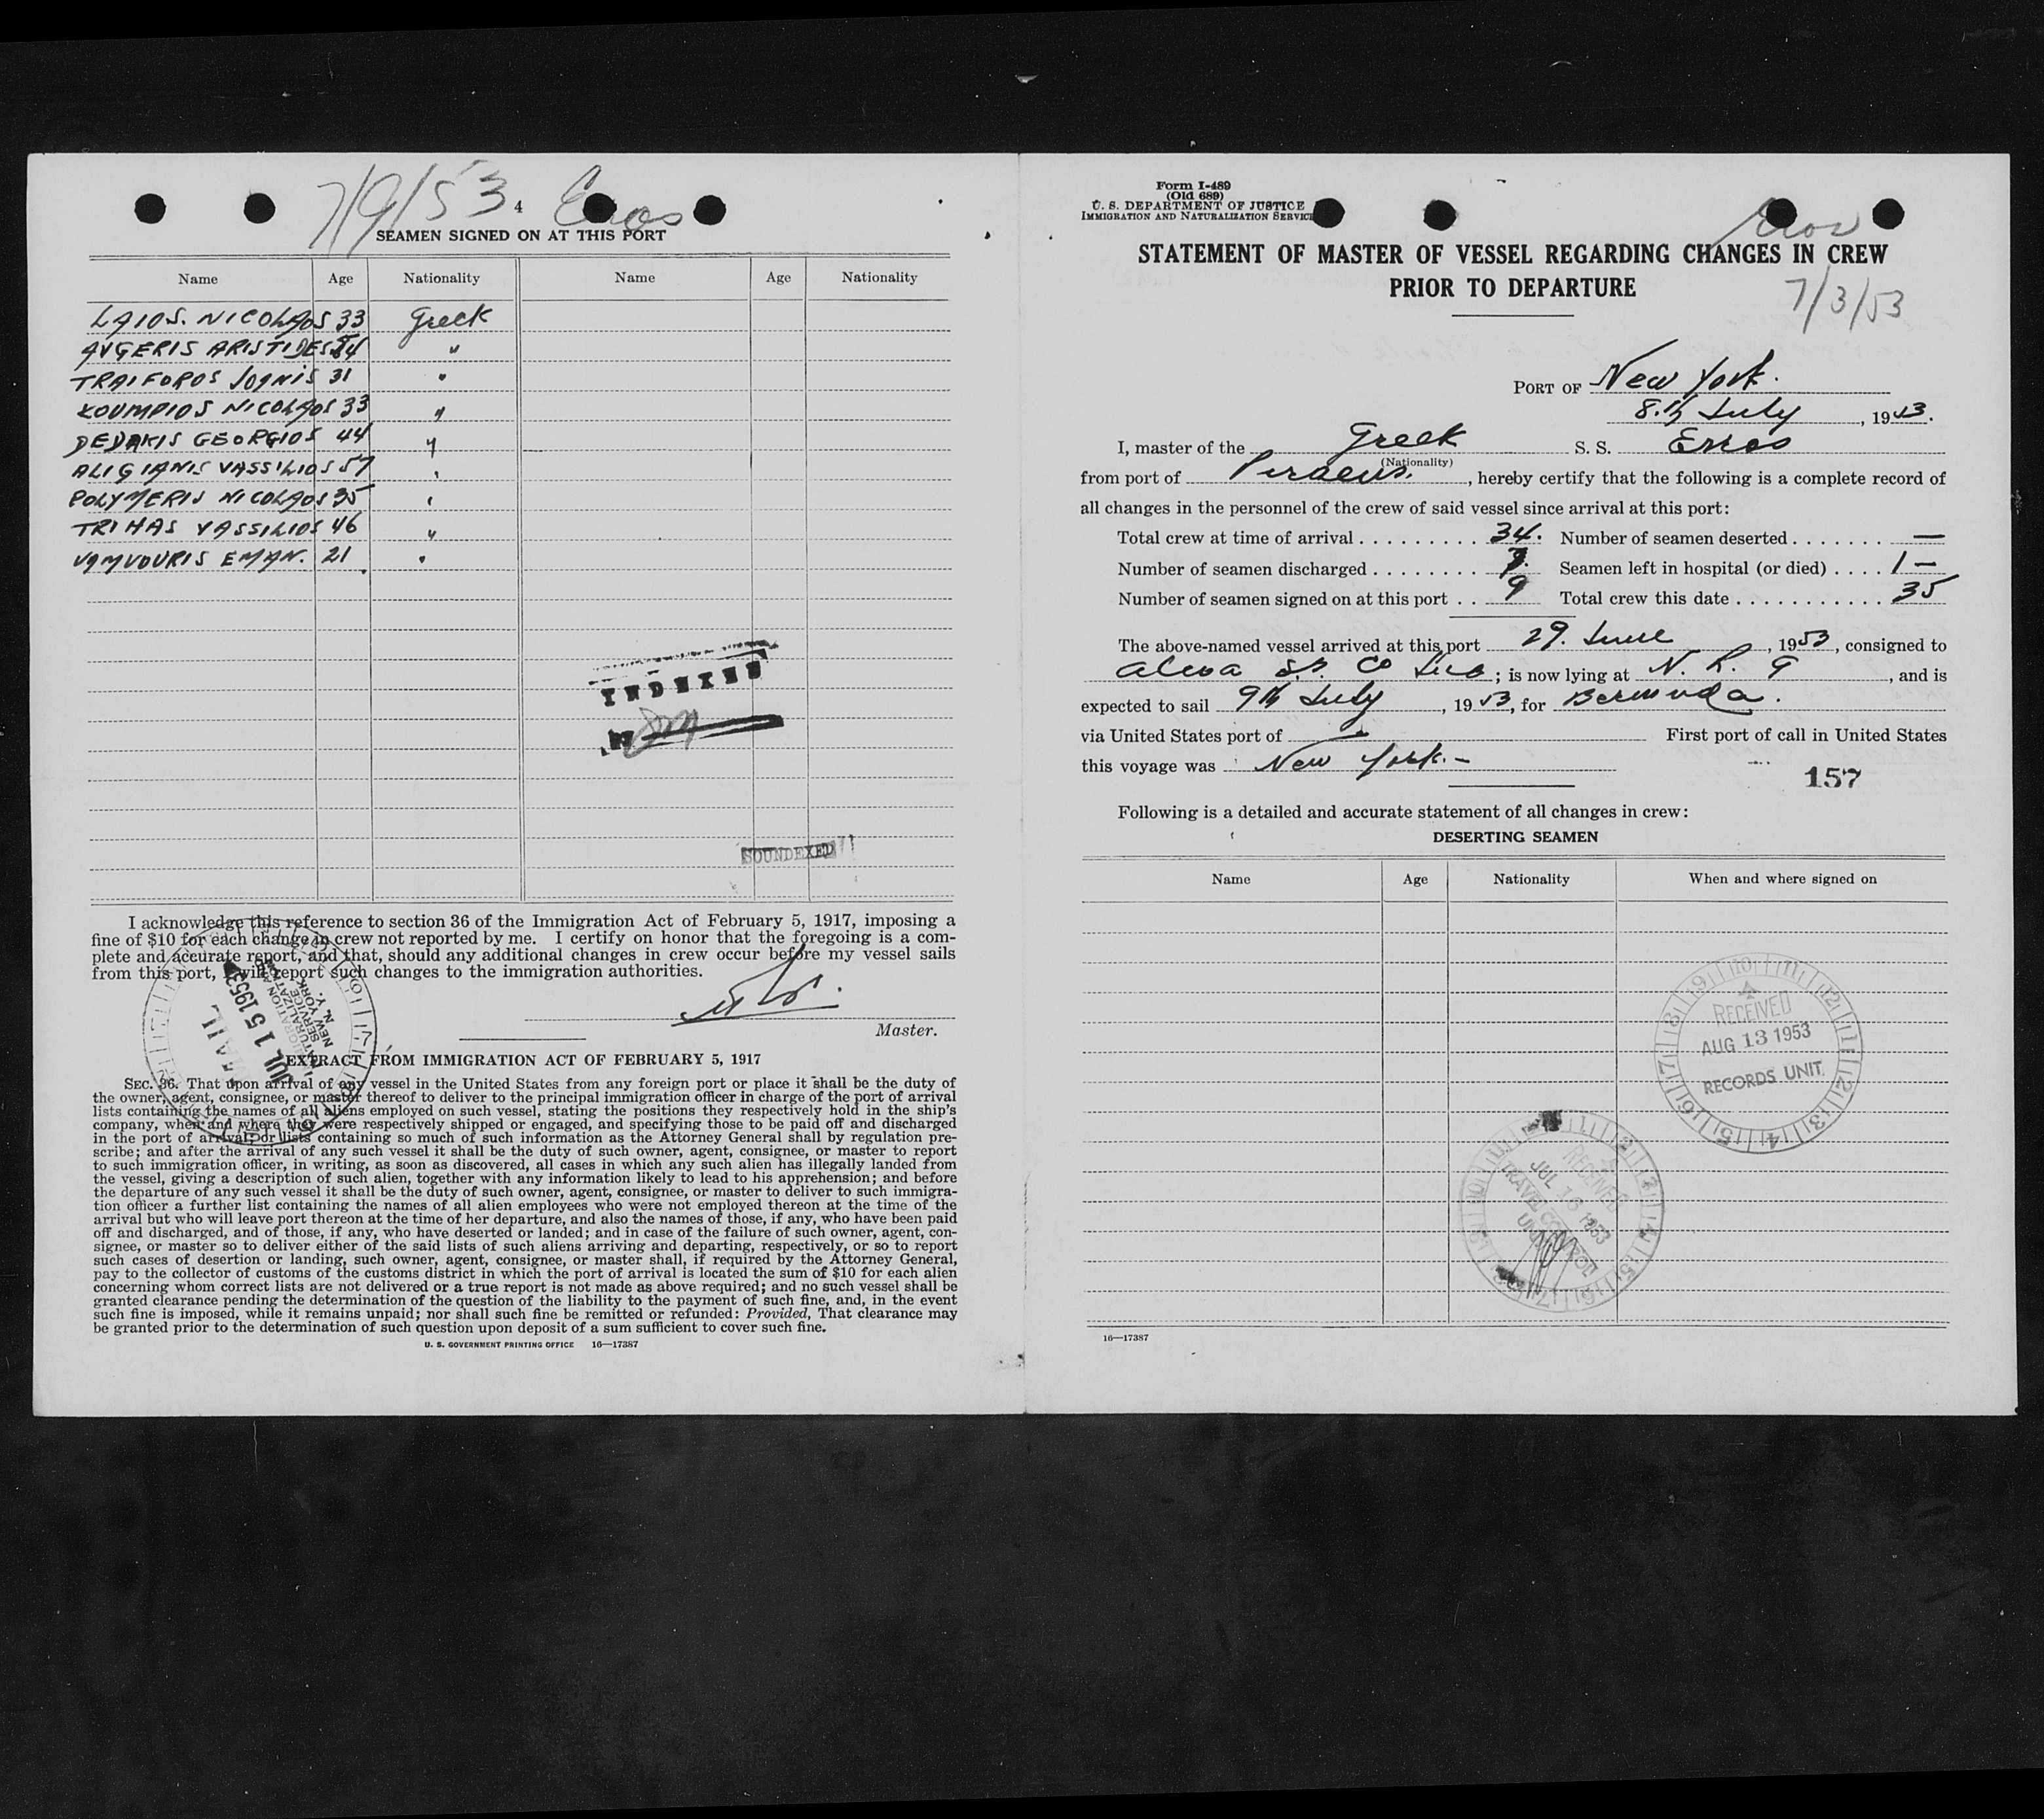 7/9/53 4 Eros
SEAMEN SIGNED ON AT THIS PORT
Name Age Nationality Name Age Nationality
LAIOS. NICOLAOS 33 Greek
AVGERIS ARISTIDES 34 "
TRAIFOROS JOANIS 31 "
KOUMPIOS NICOLAOS 33 "
DEDAKIS GEORGIOS 44 "
ALIGIANIS VASSILIOS 57 "
POLYMERIS NICOLAOS 35 "
TRIHAS VASSILIOS 46 "
VAMVOURIS EMAN. 21 "
INDEXED
by
SOUNDEXED
I acknowledge this reference to section 36 of the Immigration Act of February 5, 1917, imposing a
fine of $10 for each change in crew not reported by me. I certify on honor that the foregoing is a com-
plete and accurate report, and that, should any additional changes in crew occur before my vessel sails
from this port, I will report such changes to the immigration authorities.
Master.
MAIL
JUL 15 1953
IMMIGRATION AND
NATURALIZATION
SERVICE
NEW YORK
N. Y.
EXTRACT FROM IMMIGRATION ACT OF FEBRUARY 5, 1917
SEC. 36. That upon arrival of any vessel in the United States from any foreign port or place it shall be the duty of
the owner, agent, consignee, or master thereof to deliver to the principal immigration officer in charge of the port of arrival
lists containing the names of all aliens employed on such vessel, stating the positions they respectively hold in the ship's
company, when and where they were respectively shipped or engaged, and specifying those to be paid off and discharged
in the port of arrival; or lists containing so much of such information as the Attorney General shall by regulation pre-
scribe; and after the arrival of any such vessel it shall be the duty of such owner, agent, consignee, or master to report
to such immigration officer, in writing, as soon as discovered, all cases in which any such alien has illegally landed from
the vessel, giving a description of such alien, together with any information likely to lead to his apprehension; and before
the departure of any such vessel it shall be the duty of such owner, agent, consignee, or master to deliver to such immigra-
tion officer a further list containing the names of all alien employees who were not employed thereon at the time of the
arrival but who will leave port thereon at the time of her departure, and also the names of those, if any, who have been paid
off and discharged, and of those, if any, who have deserted or landed; and in case of the failure of such owner, agent, con-
signee, or master so to deliver either of the said lists of such aliens arriving and departing, respectively, or so to report
such cases of desertion or landing, such owner, agent, consignee, or master shall, if required by the Attorney General,
pay to the collector of customs of the customs district in which the port of arrival is located the sum of $10 for each alien
concerning whom correct lists are not delivered or a true report is not made as above required; and no such vessel shall be
granted clearance pending the determination of the question of the liability to the payment of such fine, and, in the event
such fine is imposed, while it remains unpaid; nor shall such fine be remitted or refunded: Provided, That clearance may
be granted prior to the determination of such question upon deposit of a sum sufficient to cover such fine.
U. S. GOVERNMENT PRINTING OFFICE 16—17387
Form I-489
(Old 689)
U. S. DEPARTMENT OF JUSTICE
IMMIGRATION AND NATURALIZATION SERVICE
Eros
STATEMENT OF MASTER OF VESSEL REGARDING CHANGES IN CREW
PRIOR TO DEPARTURE
7/3/53
PORT OF New York.
8.th July, 1953.
I, master of the Greek S. S. Eros
(Nationality)
from port of Piraeus., hereby certify that the following is a complete record of
all changes in the personnel of the crew of said vessel since arrival at this port:
Total crew at time of arrival . . . . . . . . . . 34. Number of seamen deserted . . . . . . . —
Number of seamen discharged . . . . . . . . 7. Seamen left in hospital (or died) . . . . 1 —
Number of seamen signed on at this port . . 9 Total crew this date . . . . . . . . . . . 35
The above-named vessel arrived at this port 29. June, 1953, consigned to
Alcoa S.S. Co Inc; is now lying at N. R. 9, and is
expected to sail 9th July, 1953, for Bermuda.
via United States port of — First port of call in United States
this voyage was New York. —
157
Following is a detailed and accurate statement of all changes in crew:
DESERTING SEAMEN
Name Age Nationality When and where signed on
RECEIVED
AUG 13 1953
RECORDS UNIT
RECEIVED
JUL 16 1953
TRAVEL CONTROL
UNIT
16—17387